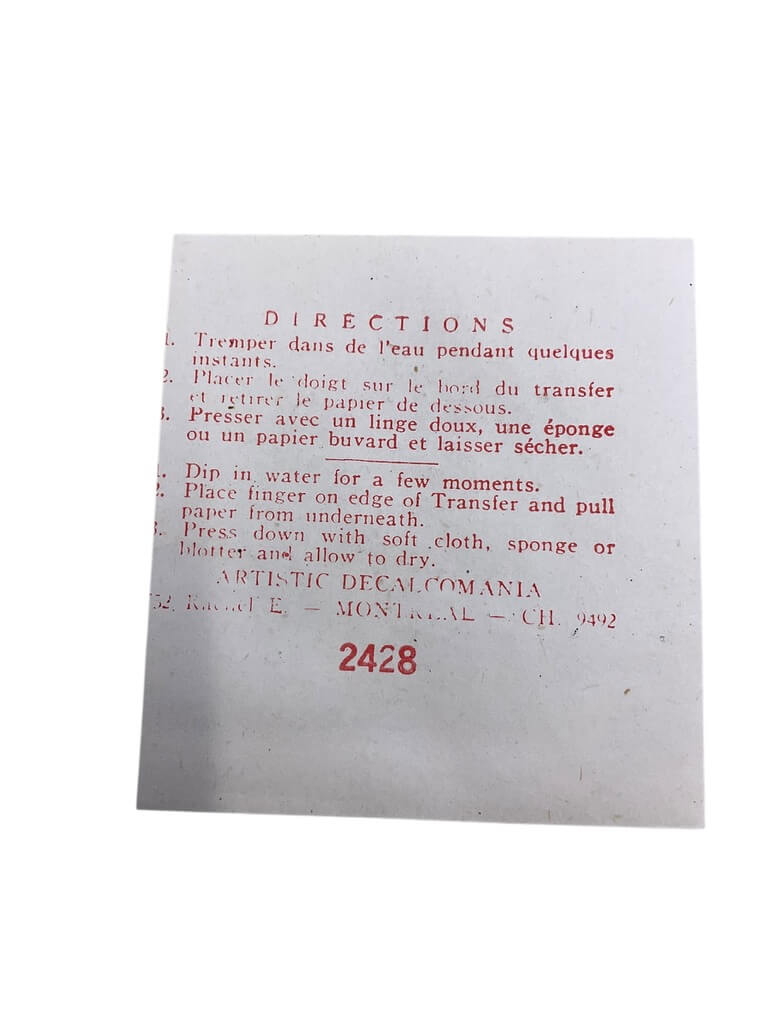 DIRECTIONS
1. Tremper dans de l'eau pendant quelques
instants.
2. Placer le doigt sur le bord du transfer
et retirer le papier de dessous.
3. Presser avec un linge doux, une éponge
ou un papier buvard et laisser sécher.
1. Dip in water for a few moments.
2. Place finger on edge of Transfer and pull
paper from underneath.
3. Press down with soft cloth, sponge or
blotter and allow to dry.
ARTISTIC DECALCOMANIA
52, Rachel E. — MONTREAL — CH. 9492
2428